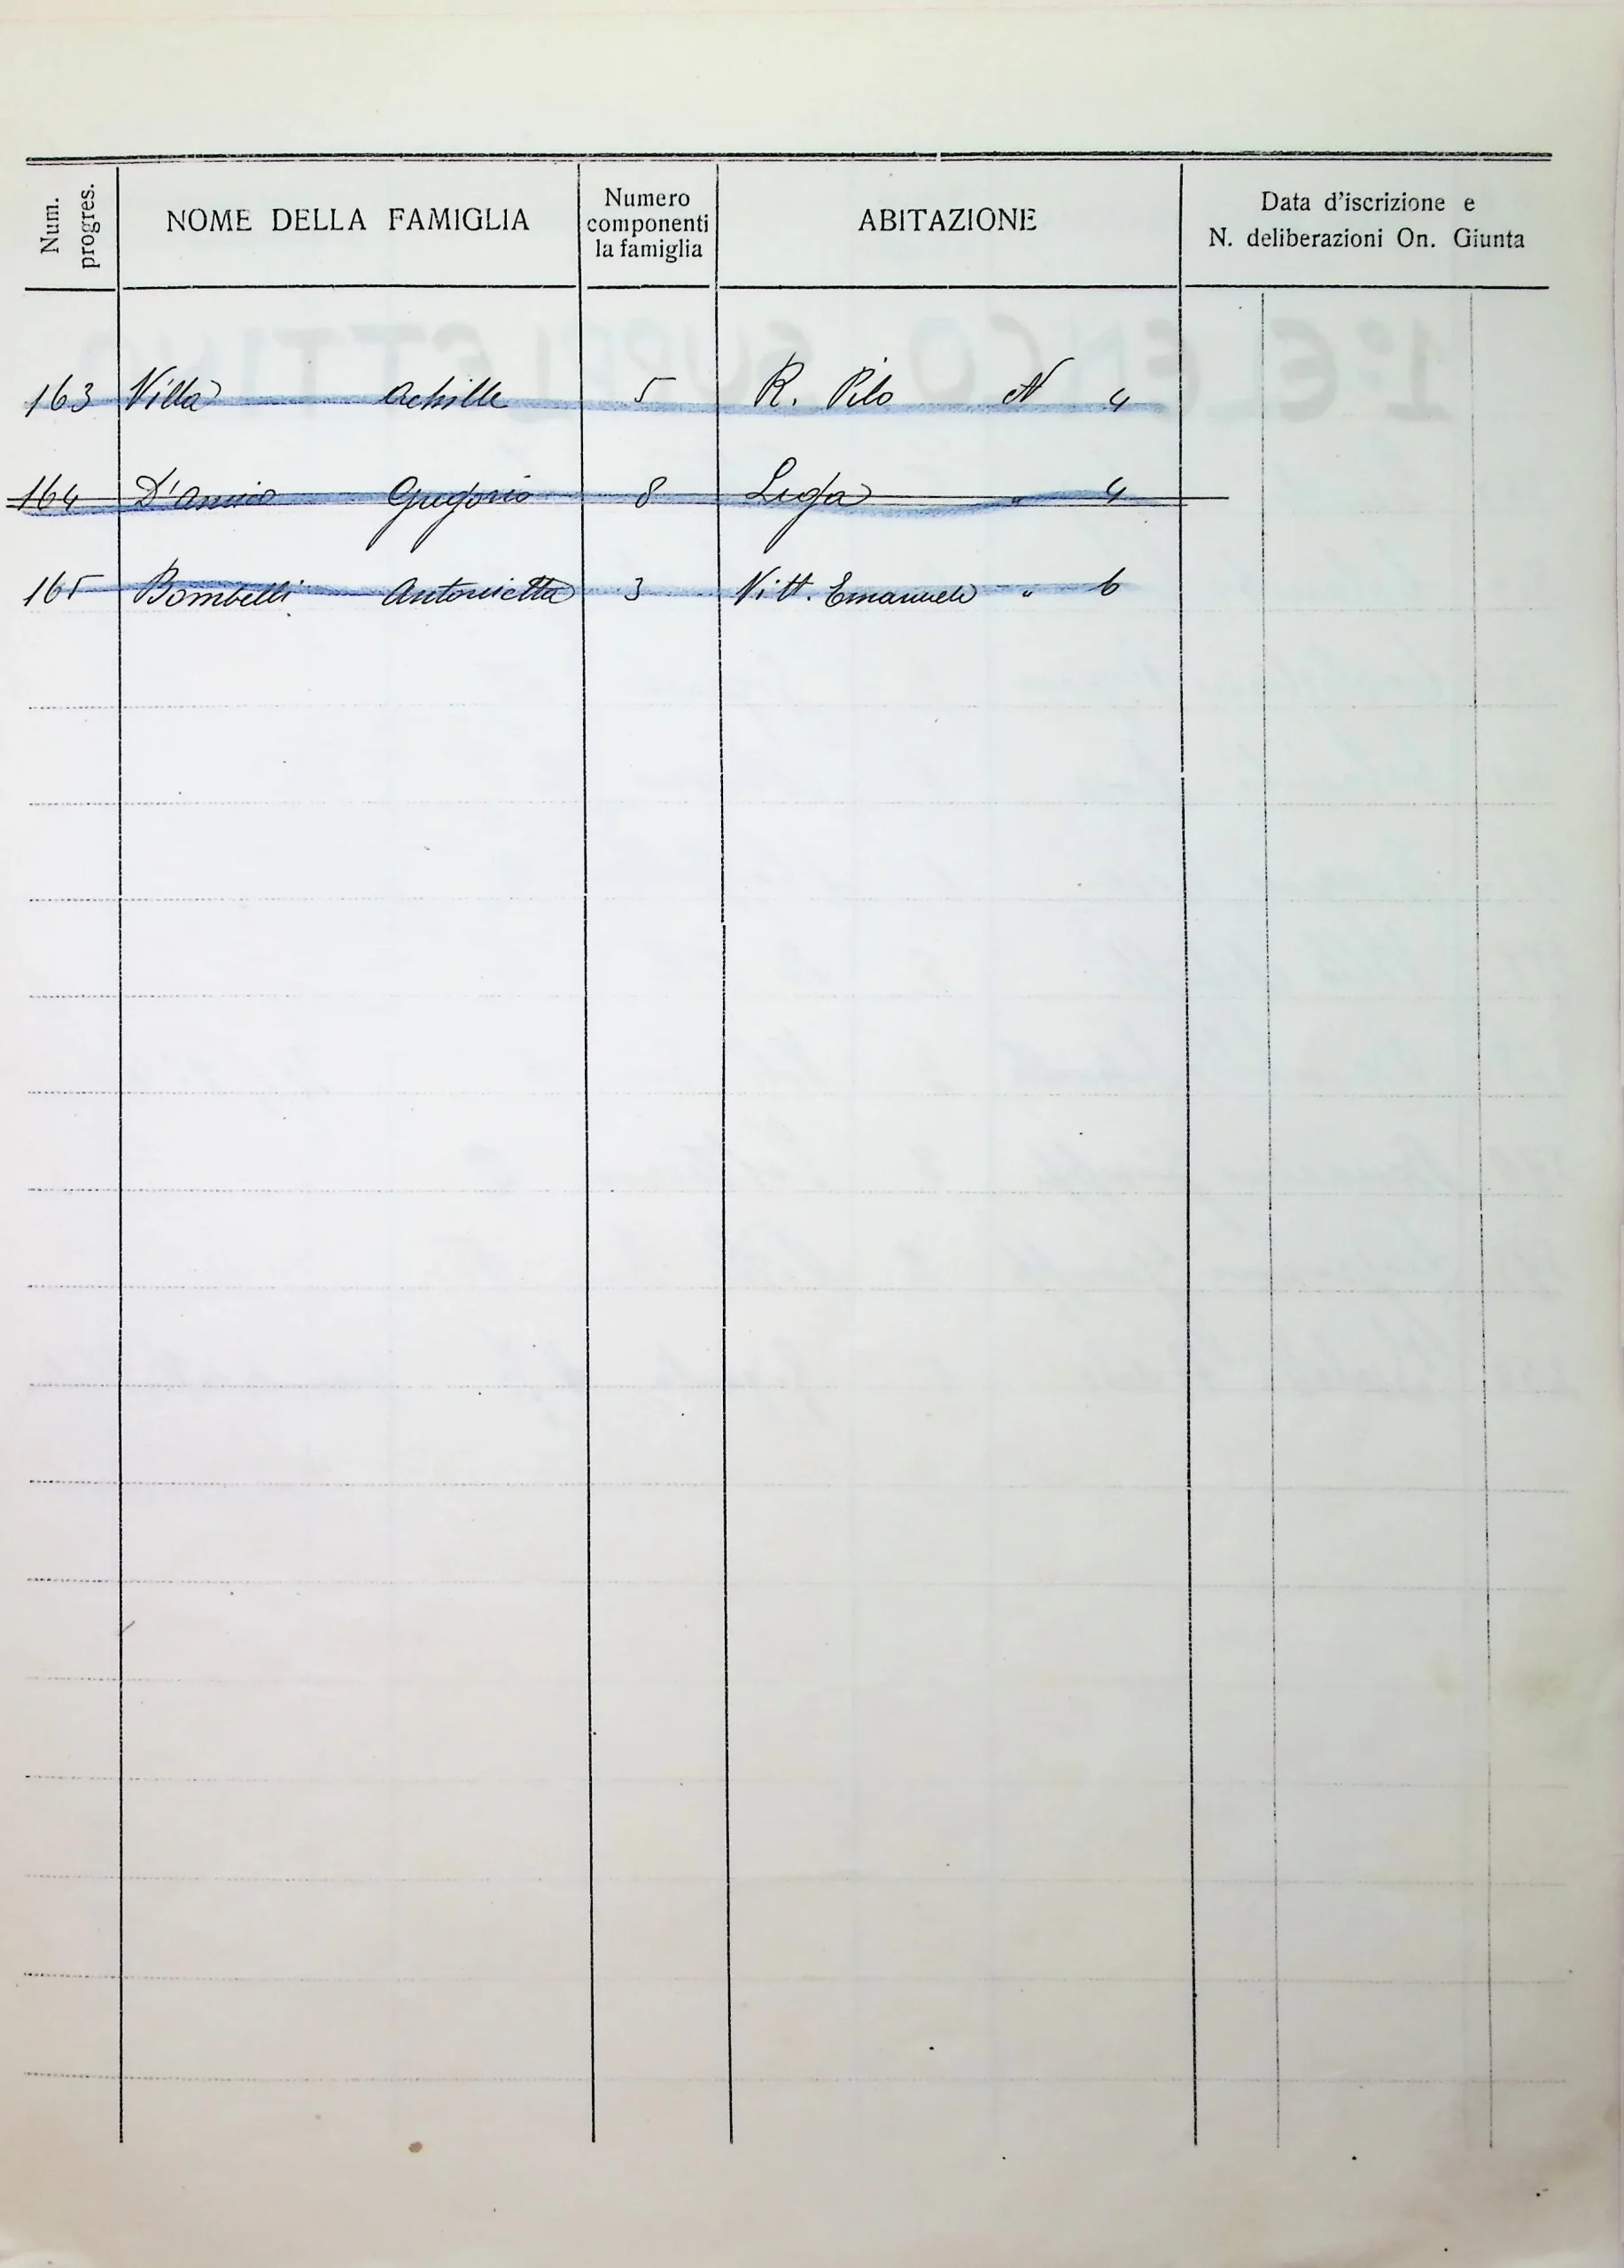 Num. progres.
NOME DELLA FAMIGLIA
Numero componenti la famiglia
ABITAZIONE
Data d'iscrizione e N. deliberazioni On. Giunta
163 Villa Achille 5 R. Pilo N 4
164 D'Amico Gregorio 8 4
165 Bombelli Antonietta 3 Vitt. Emanuele " 6